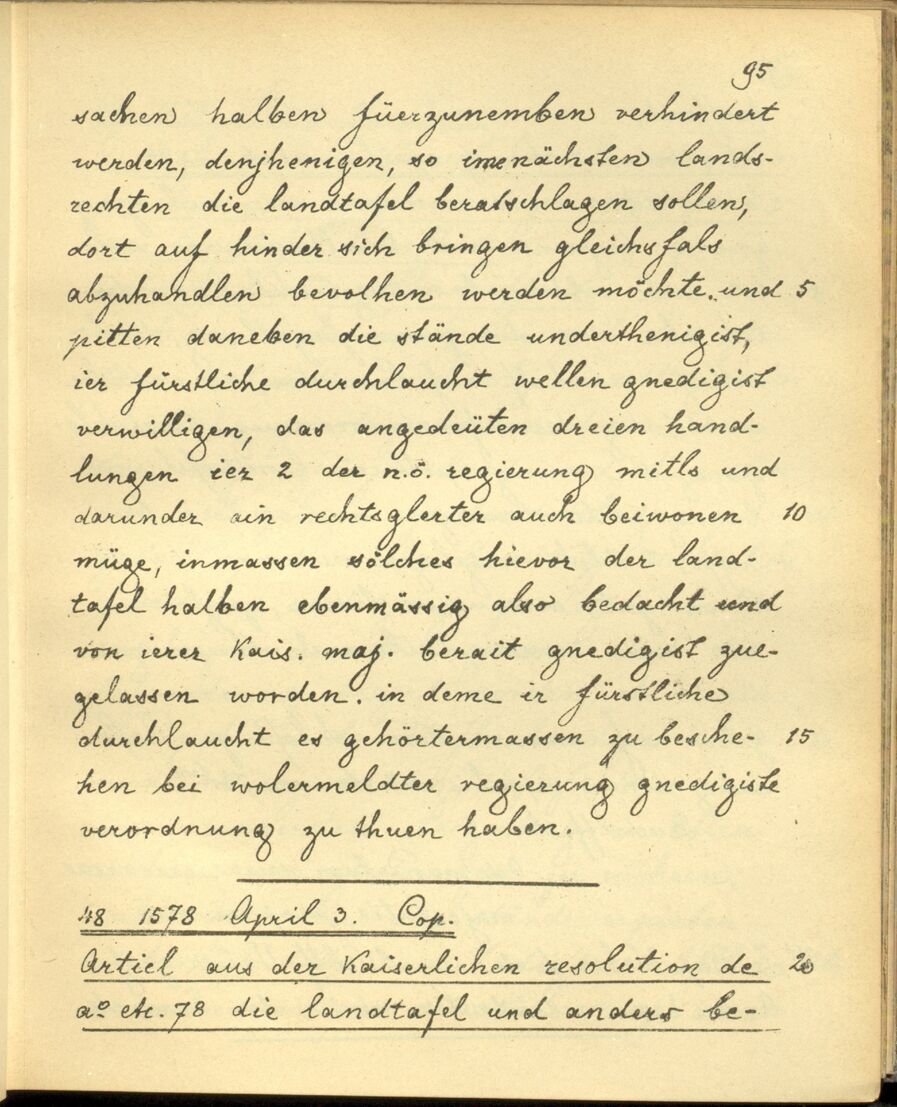 95
sachen halben füerzunemben verhindert
werden, denjhenigen, so ime nächsten lands-
rechten die landtafel beratschlagen sollen,
dort auf hinder sich bringen gleichsfals
abzuhandlen bevolhen werden möchte. und 5
pitten daneben die stände underthenigist,
ier fürstliche durchlaucht wellen gnedigist
verwilligen, das angedeüten dreien hand-
lungen ier 2 der n.ö. regierung mitls und
darunder ain rechtsglerter auch beiwonen 10
müge, inmassen sölches hievor der land-
tafel halben ebenmässig also bedacht und
von ierer Kais. maj. berait gnedigist zue-
gelassen worden. in deme ir fürstliche
durchlaucht es gehörtermassen zu besche- 15
hen bei wolermeldter regierung gnedigiste
verordnung zu thuen haben.
48 1578 April 3. Cop.
Articl aus der Kaiserlichen resolution de 20
aº etc. 78 die landtafel und anders be-